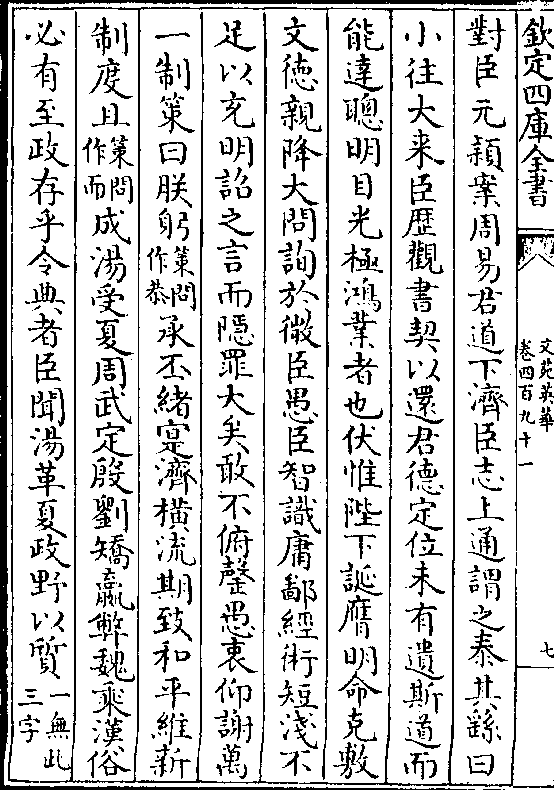 欽定四庫全書
文苑英華
卷四百九十一
七
對臣元穎案周易君道下濟臣志上通謂之泰其繇曰
小往大来臣歴觀書契以還君德定位未有遺斯道而
能達聰明目光極鴻業者也伏惟陛下誕膺明命克敷
文徳親降大問詢於微臣愚臣智識庸鄙經術短淺不
足以充明詔之言而隱罪大矣敢不俯罄愚衷仰謝萬
一制策曰朕躬策問作恭承丕緒寔濟橫流期致和平維新
制度且策問作而成湯受夏周武定殷劉矯嬴弊魏乘漢俗
必有至政存乎令典者臣聞湯革夏政野以質一無此三字